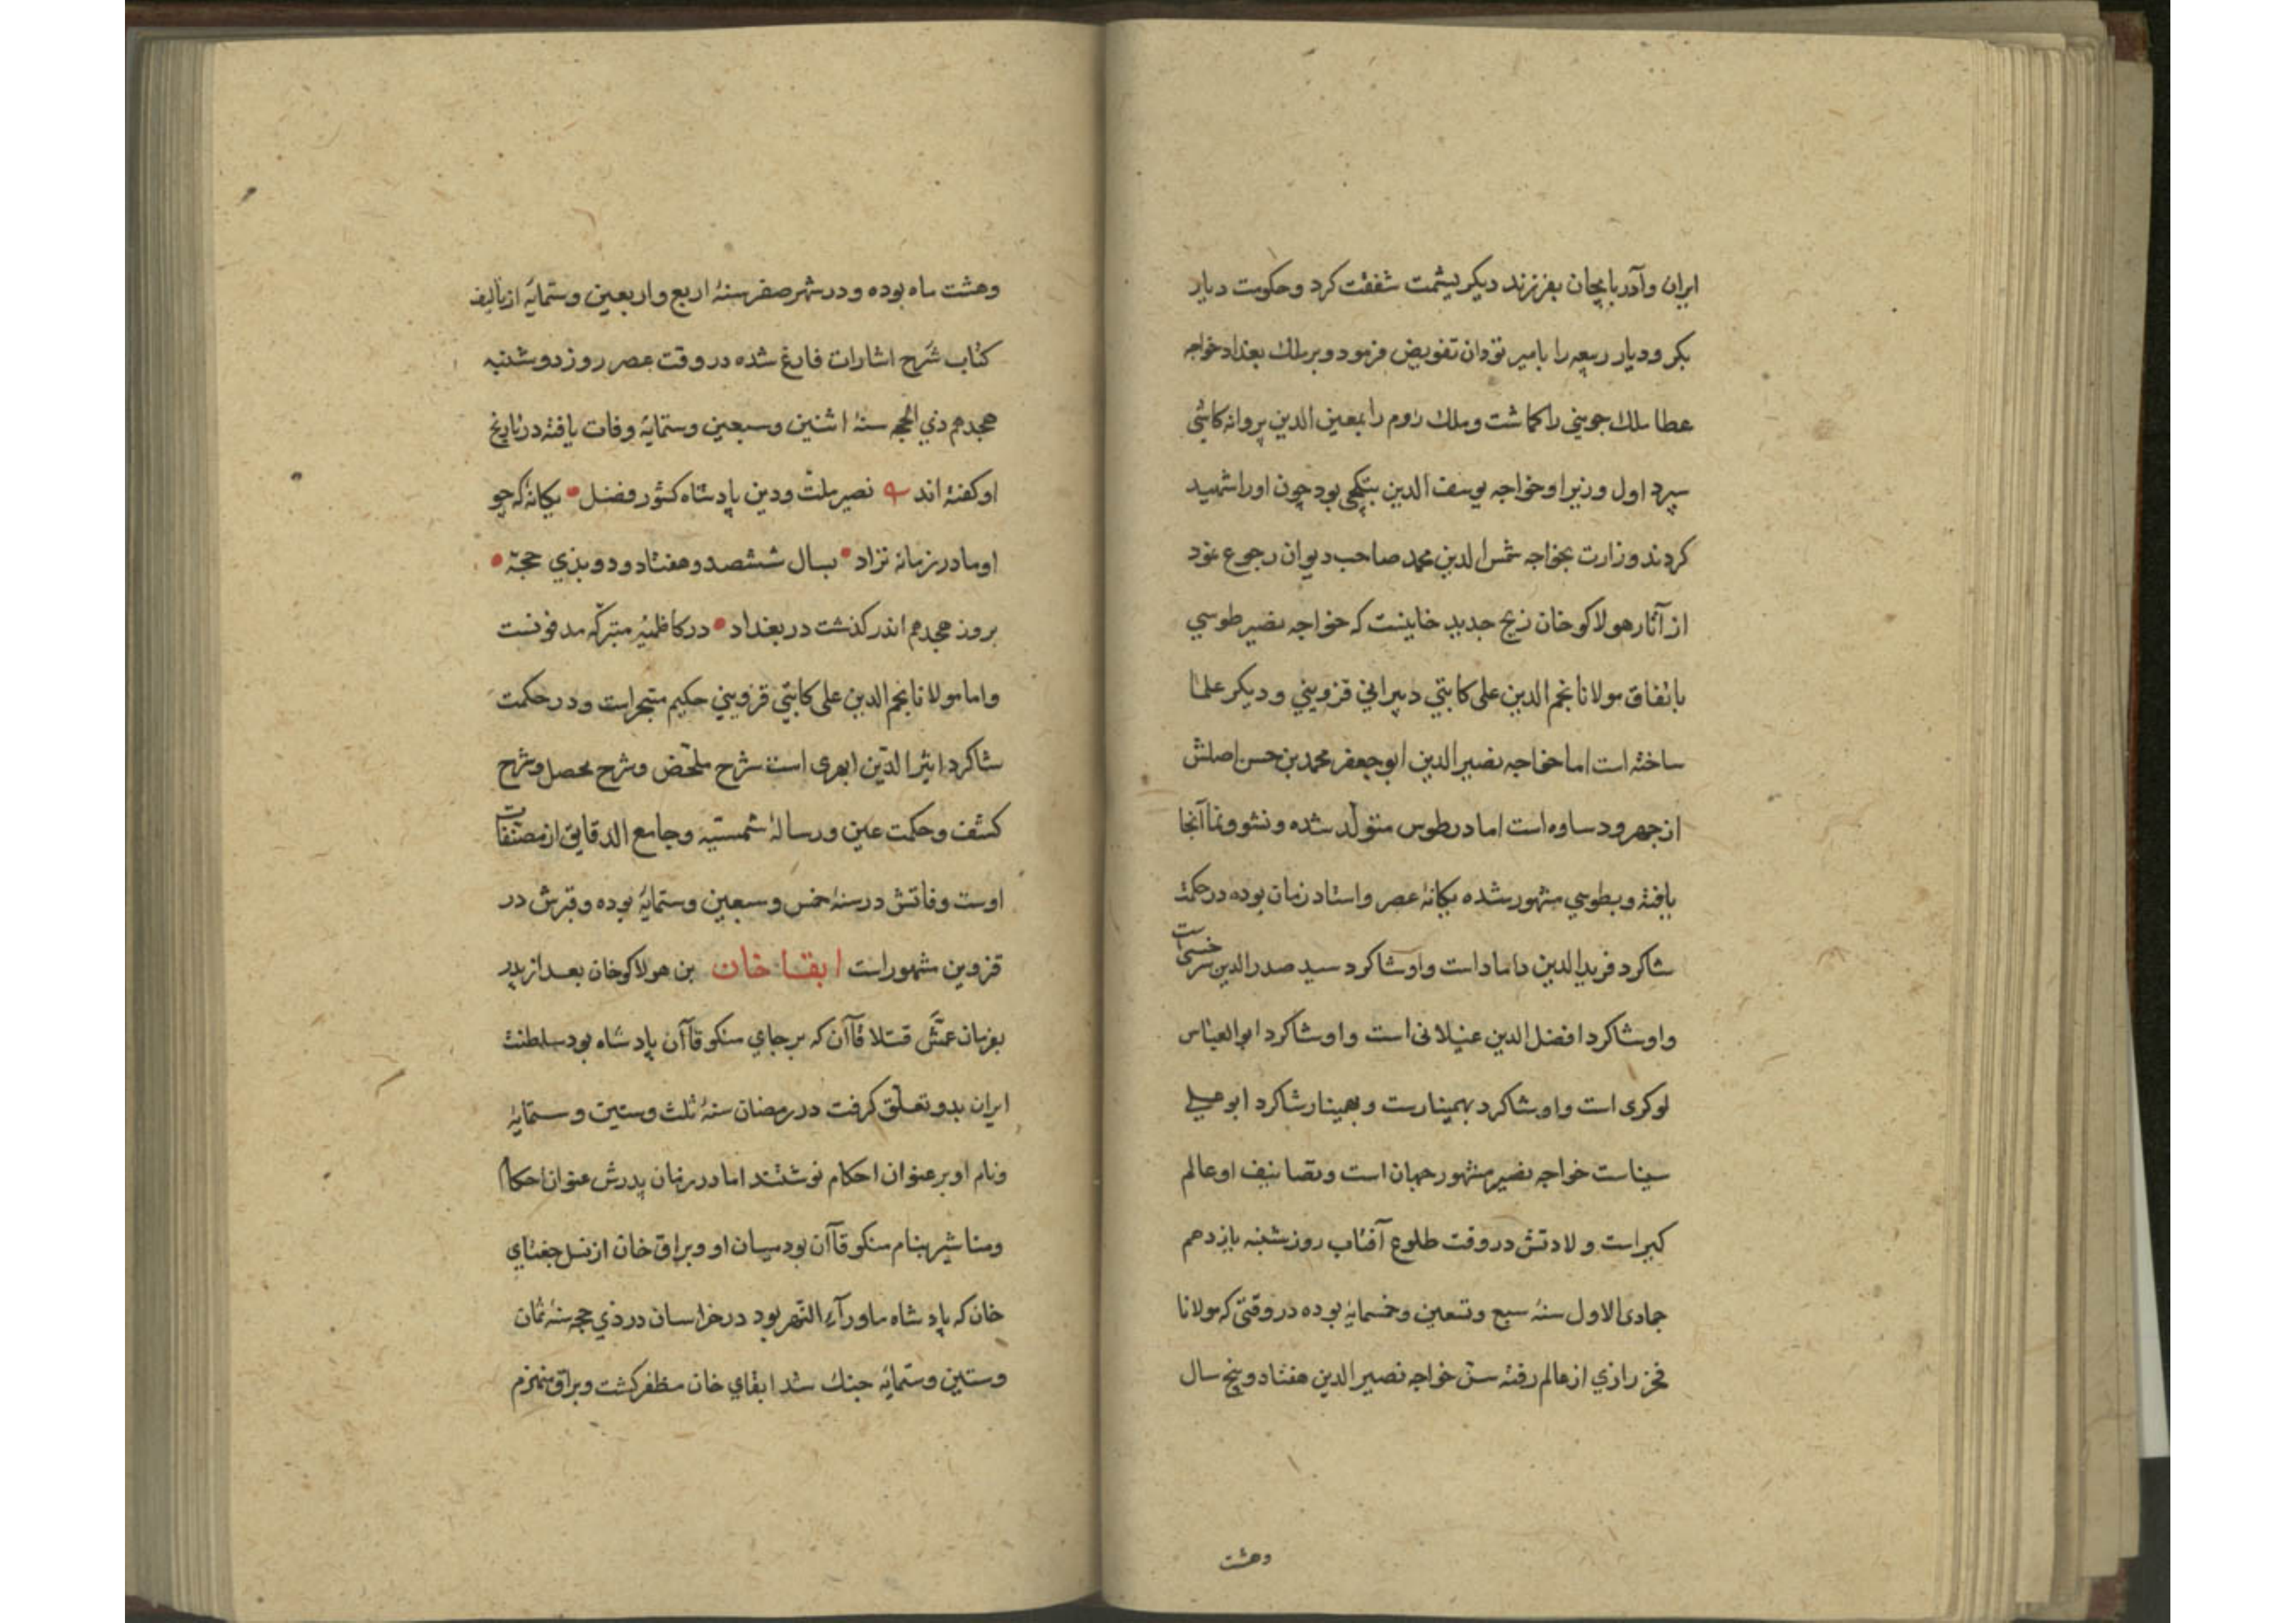 ایران وآذربایجان بفرزند دیکر یشمت شفقت کرد وحکومت دیار
بکر ودیار ربیعه را بامیر تودان تفویض فرمود وبرملك بغداد خواجه
عطا ملك جویني را کماشت وملك روم را بمعین الدین پروانه کاشي
سپرد اول وزیر او خواجه یوسف الدین بتکچی بود چون اورا شهید
کردند وزارت بخواجه شمس الدین محمد صاحب دیوان رجوع نمود
از آثار هولاکو خان زیج جدید خانیست که خواجه نصیر طوسي
باتفاق مولانا نجم الدین علی کاتبي دبیراني قزویني ودیکر علما
ساخته است اما خواجه نصیر الدین ابو جعفر محمد بن حسن اصلش
از جهرود ساوه است اما در طوس متولد شده ونشو ونما آنجا
یافته وبطوسي مشهور شده یکانهٔ عصر واستاد زمان بوده در حکمت
شاکرد فرید الدین داماد است واو شاکرد سید صدر الدین سرخسی است
واو شاکرد افضل الدین غیلانی است واو شاکرد ابو العباس
لوکری است واو شاکرد بهمینارست وبهمینار شاکرد ابو علي
سیناست خواجه نصیر مشهور جهان است وتصانیف او عالم
کیر است ولادتش در وقت طلوع آفتاب روز شنبه یازدهم
جمادی الاول سنهٔ سبع وتسعین وخمسمایهٔ بوده در وقتی که مولانا
فخر رازي از عالم رفته سن خواجه نصیر الدین هفتاد وپنج سال
وهشت
وهشت ماه بوده ودر شهر صفر سنهٔ اربع واربعین وستمایهٔ از تألیف
کتاب شرح اشارات فارغ شده در وقت عصر روز دوشنبه
هجدهم ذي الحجه سنهٔ اثنین وسبعین وستمایهٔ وفات یافته در تاریخ
او کفته اند نصیر ملت ودین پادشاه کشور فضل • یکانهٔ که چو
او مادر زمانه نزاد • بسال ششصد وهفتاد ودو بذي حجّه •
بروز هجدهم اندر کذشت در بغداد • در کاظمیهٔ متبرکه مدفونست
واما مولانا نجم الدین علی کاتبي قزویني حکیم متبحر است ودر حکمت
شاکرد اثیر الدّین ابهری است شرح ملخّص وشرح محصل وشرح
کشف وحکمت عین ورسالهٔ شمسیّه وجامع الدقایق از مصنّفات
اوست وفاتش در سنهٔ خمس وسبعین وستمایهٔ بوده وقبرش در
قزوین مشهور است ابقا خان بن هولاکو خان بعد از پدر
بفرمان عمّش قتلا قاآن که برجاي منکو قاآن پادشاه بود سلطنت
ایران بدو تعلّق کرفت در رمضان سنهٔ ثلث وستین وستمایهٔ
ونام او بر عنوان احکام نوشتند اما در زمان پدرش عنوان احکام
ومناشیر بنام منکو قاآن بود میان او وبراق خان از نسل جغتاي
خان که پادشاه ماورآء النّهر بود در خراسان در ذي حجه سنهٔ ثمان
وستین وستمایهٔ جنك شد ابقاي خان مظفر کشت وبراق منهزم